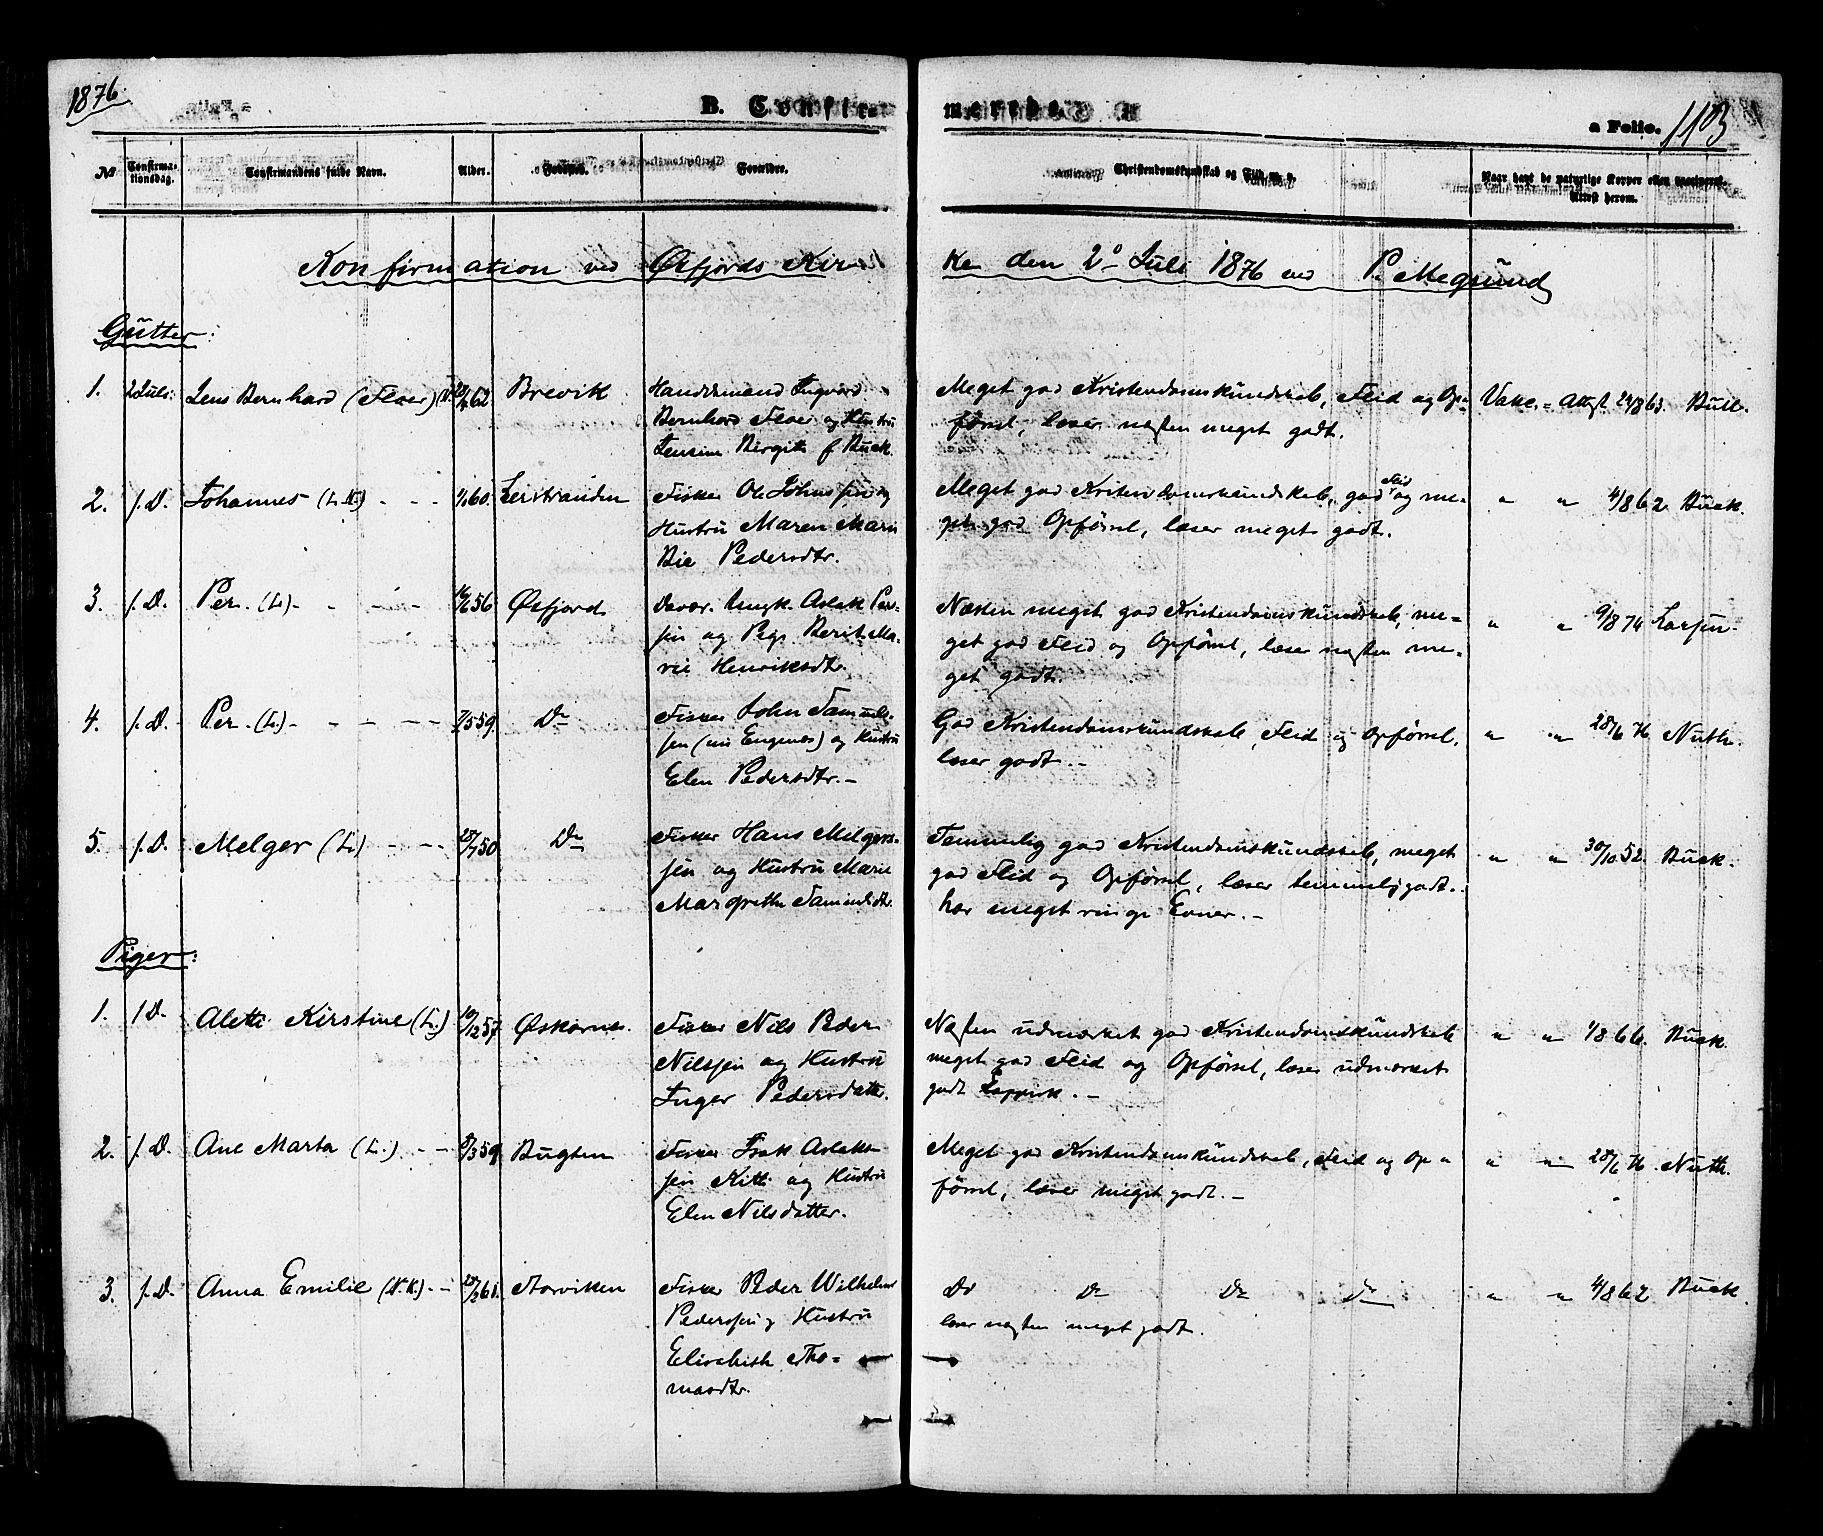 1876.
B. Confir
merede.
a Folio. 113
No Confirma-tionsdag. Confirmandens fulde Navn. Alder. Fødested. Forældre.
Christendomskundskab og Flid m. v. Naar havt de naturlige Kopper eller vaccineret. Attest herom.
Konfirmation ved Øxfjords Kir
ke den 2den Juli 1876 ved P.
Gutter:
1. 2 Juli Jens Bernhard (Floer) 62 Brevik Handelsmand Ingvard
Bernhard Floer og Hustru
Jensine Birgitte f Buck
Meget god Kristendomskundskab, Flid og Op-
førsel, læser næsten meget godt.
Vakc. - Attest 24/8 63. Buck.
2. s. D. Johannes 60. Lerstranden Fisker Ole Johnssen og
Hustru Maren Marie
Bie Pedersdtr.
Meget god Kristendomskundskab, god Flid og me-
get god Opførsel, læser meget godt.
" " 4/8 62 Buck.
3. s. D. Per. (L.) 56 Øxfjord Aslak Per-
sen og Berit Ma-
rie Henriksdtr.
Næsten meget god Kristendomskundskab, me-
get god Flid og Opførsel, læser næsten me-
get godt.
" " 9/8 74 Larsen.
4. s. D. Per. (L.) 7/5 59. Do Fisker John Samuels-
sen og Hustru
Elen Pedersdtr.
God Kristendomskundskab, Flid og Opførsel,
læser godt.
" " 28/6 76 Nuth.
5. s. D. Melger (L.) 50 Do Fisker Hans Melgers-
sen og Hustru Marie
Margrethe Samuelsdtr.
Temmelig god Kristendomskundskab, meget
god Flid og Opførsel, læser temmelig godt.
har meget ringe Evner.
" " 30/10 52. Buck.
Piger:
1. s. D. Alette Kirstine (L.) 19/12 57. Øskarnes Fisker Nils Peder
Nilssen og Hustru
Inger Pedersdatter.
Næsten udmærket god Kristendomskundskab
meget god Flid og Opførsel, læser udmærket
godt Lappisk.
" " 1/8 66. Buck.
2. s. D. Ane Marta (L.) 8/3 59 Bugten Fisker Isak Aslak-
sen Kitti og Hustru
Elen Nilsdatter.
Meget god Kristendomskundskab, Flid og Op-
førsel, læser meget godt.
" " 28/6 76. Nuth.
3. s. D. Anna Emilie (N. K.) 61. Aarviken Fisker Peder Wilhelm
Pederssen og Hustru
Elisabeth Tho-
masdtr.
Do Do Do Do
læser næsten meget godt.
" " 4/8 62 Buck.